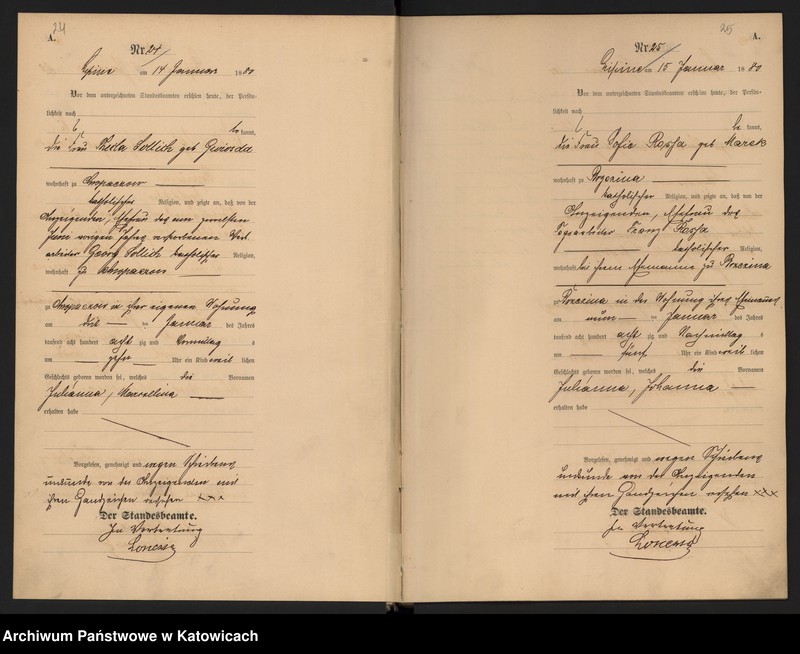 24
A.
Nr. 24
Lipine am 14 Januar 1880
Vor dem unterzeichneten Standesbeamten erschien heute, der Persön-
lichkeit nach
be kannt,
die Frau Thekla Sollich geb
wohnhaft zu Chropaczow
katholischer Religion, und zeigte an, daß von der
Anzeigenden, Ehefrau des am zwölften
Juni vorigen Jahres verstorbenen
arbeiter Georg Sollich katholischer Religion,
wohnhaft zu Chropaczow
zu Chropaczow in ihrer eigenen Wohnung
am ten Januar des Jahres
tausend acht hundert acht zig und Vormittag s
um zehn Uhr ein Kind weib lichen
Geschlechts geboren worden sei, welches die Vornamen
Julianna, Marcellina
erhalten habe
Vorgelesen, genehmigt und wegen Schreibens
unkunde von der Anzeigenden mit
ihren Handzeichen versehen xxx
Der Standesbeamte.
In Vertretung
25
A.
Nr. 25
Lipine am 15 Januar 1880
Vor dem unterzeichneten Standesbeamten erschien heute, der Persön-
lichkeit nach
be kannt,
die Frau Sofie geb Marek
wohnhaft zu Brzezina
katholischer Religion, und zeigte an, daß von der
Anzeigenden, Ehefrau des
Franz
katholischer Religion,
wohnhaft bei ihrem Ehemanne zu Brzezina
zu Brzezina in der Wohnung ihres Ehemannes
am neun ten Januar des Jahres
tausend acht hundert acht zig und Nachmittag s
um fünf Uhr ein Kind weib lichen
Geschlechts geboren worden sei, welches die Vornamen
Julianna, Johanna
erhalten habe
Vorgelesen, genehmigt und wegen Schreibens
unkunde von der Anzeigenden
mit ihren Handzeichen versehen xxx
Der Standesbeamte.
In Vertretung
Archiwum Państwowe w Katowicach